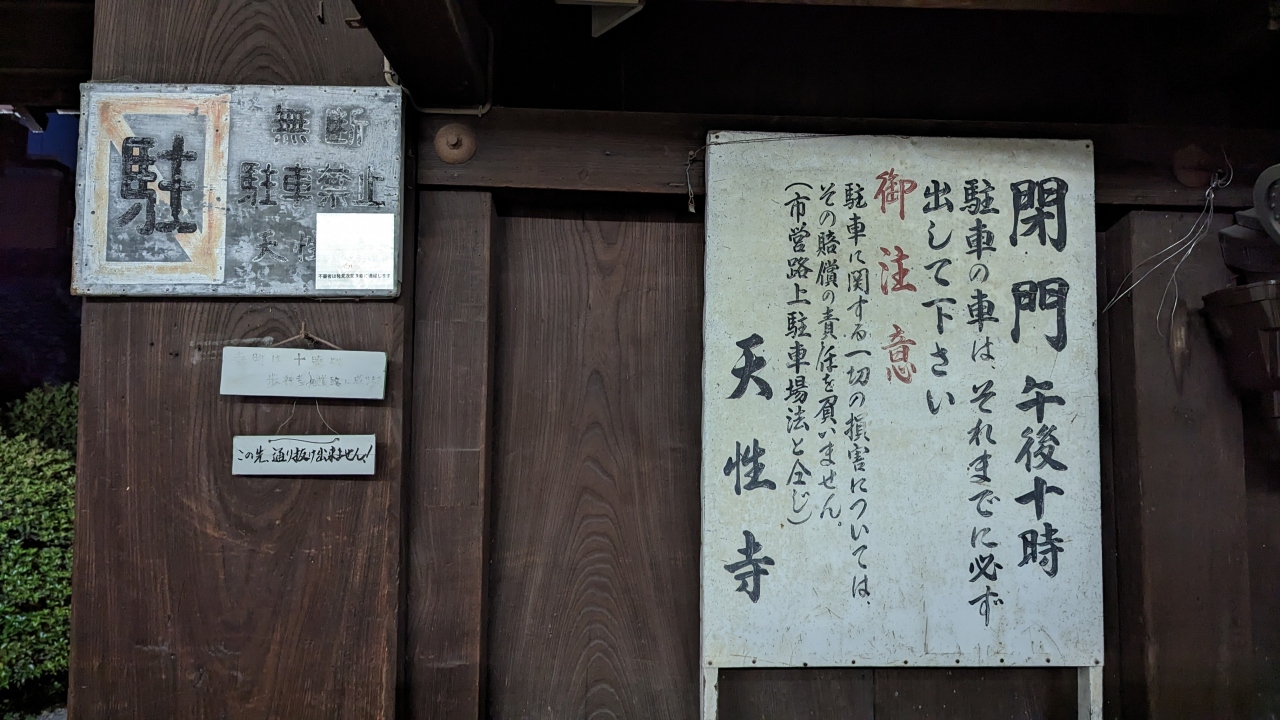 駐
無断
駐車禁止
天性
この先、通り抜け出来ません!
閉門 午後十時
駐車の車は、それまでに必ず
出して下さい
御注意
駐車に関する一切の損害については、
その賠償の責任を負いません。
(市営路上駐車場法と仝じ)
天性寺